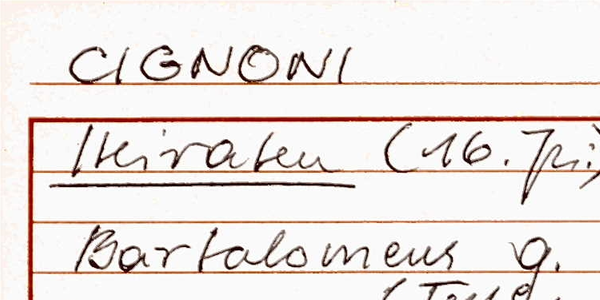 CIGNONI
Heiraten (16.
Bartalomeus q.